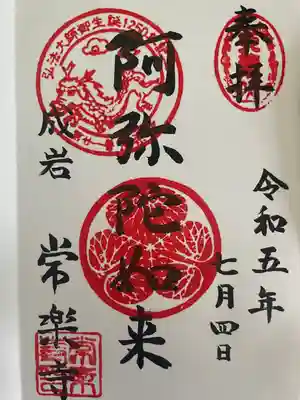 奉拝
令和五年
七月四日
阿弥陀如来
弘法大師御生誕1250年
成岩
常楽寺